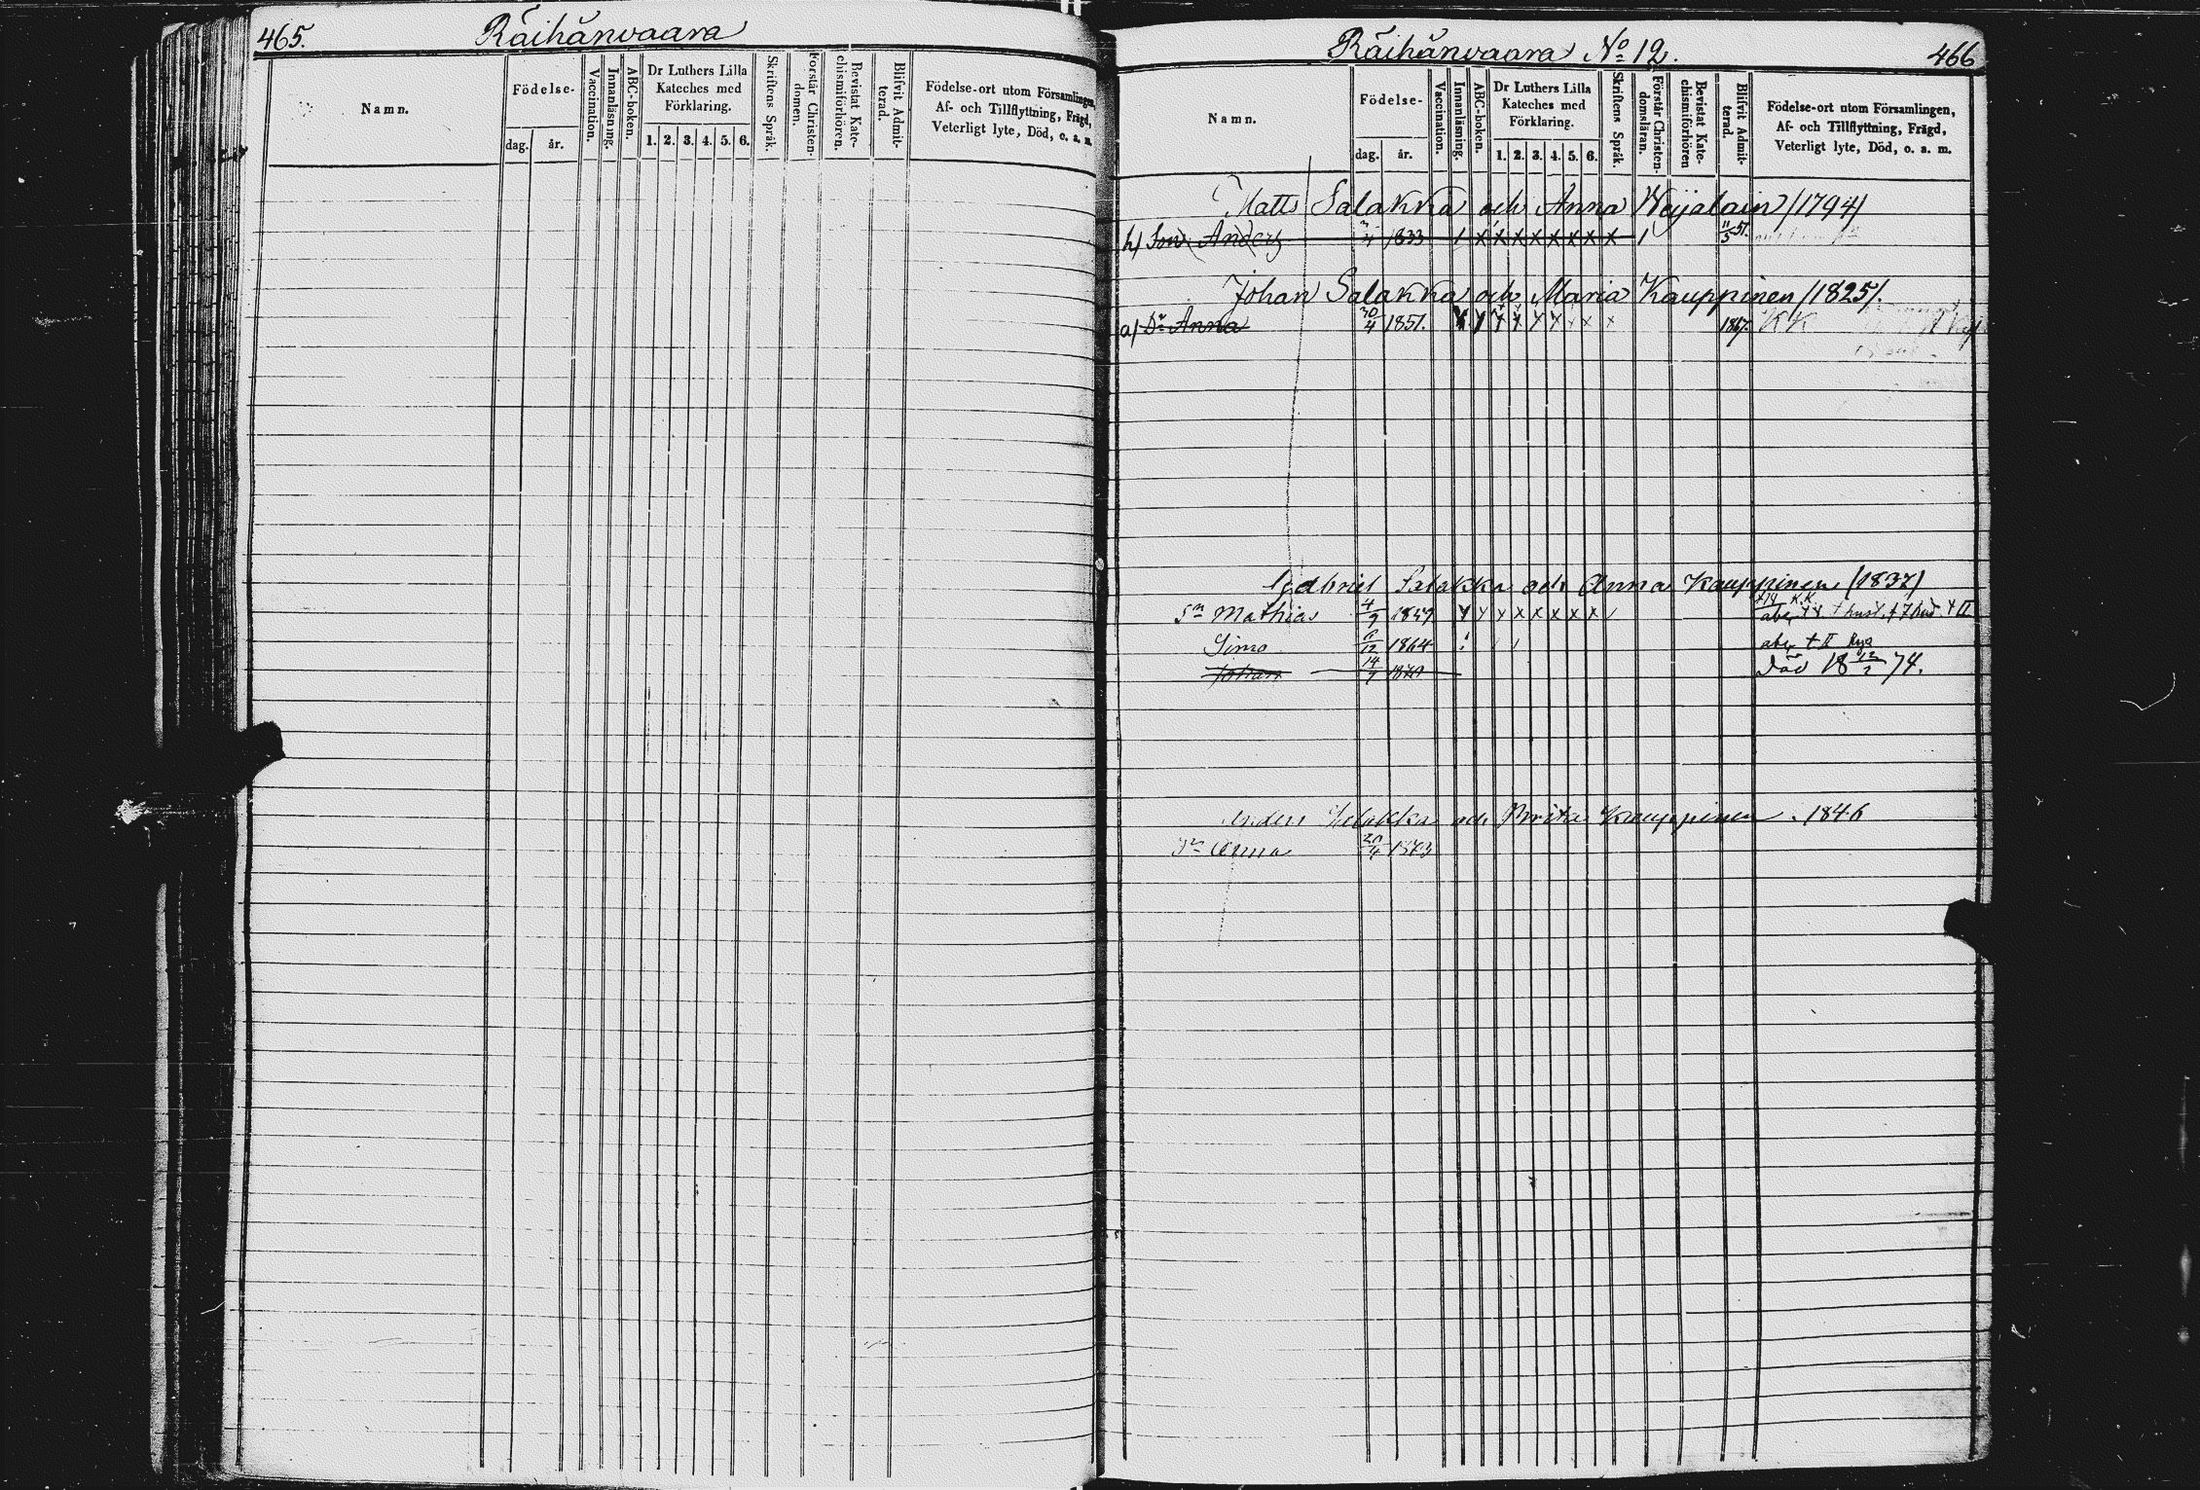 465. Räihänvaara
Namn.
Födelse-
dag. år.
Vaccination.
Innanläsning.
ABC-boken.
Dr Luthers Lilla
Kateches med
Förklaring.
1. 2. 3. 4. 5. 6.
Skriftens Språk.
Förstår Christen-
domen.
Bevistat Kate-
chismiförhören.
Blifvit Admit-
terad.
Födelse-ort utom Församlingen,
Af- och Tillflyttning, Frägd,
Veterligt lyte, Död, o. s. m.
Räihänvaara No 12. 466
Namn.
Födelse-
dag. år.
Vaccination.
Innanläsning.
ABC-boken.
Dr Luthers Lilla
Kateches med
Förklaring.
1. 2. 3. 4. 5. 6.
Skriftens Språk.
Förstår Christen-
domsläran.
Bevistat Kate-
chismiförhören
Blifvit Admit-
terad.
Födelse-ort utom Församlingen,
Af- och Tillflyttning, Frägd,
Veterligt lyte, Död, o. s. m.
Matts Salakka och Anna Weijalain /1794/
h) Son Anders 4 1833 / x x x x x x x x / 11/5 51.
Johan Salakka och Maria Kauppinen /1825/.
a) Dr Anna 30/4 1851. x x x x x x x x x 1867. KK
Gabriel Salakka och Anna Kauppinen (1837)
Sn Mathias 4/9 1859 x x x x x x x x /
Simo 6/12 1864
Johan 14/9 Död 18 12/2 74.
Anders Salakka och Brita Kauppinen. 1846
Dr Anna 20/4 1873